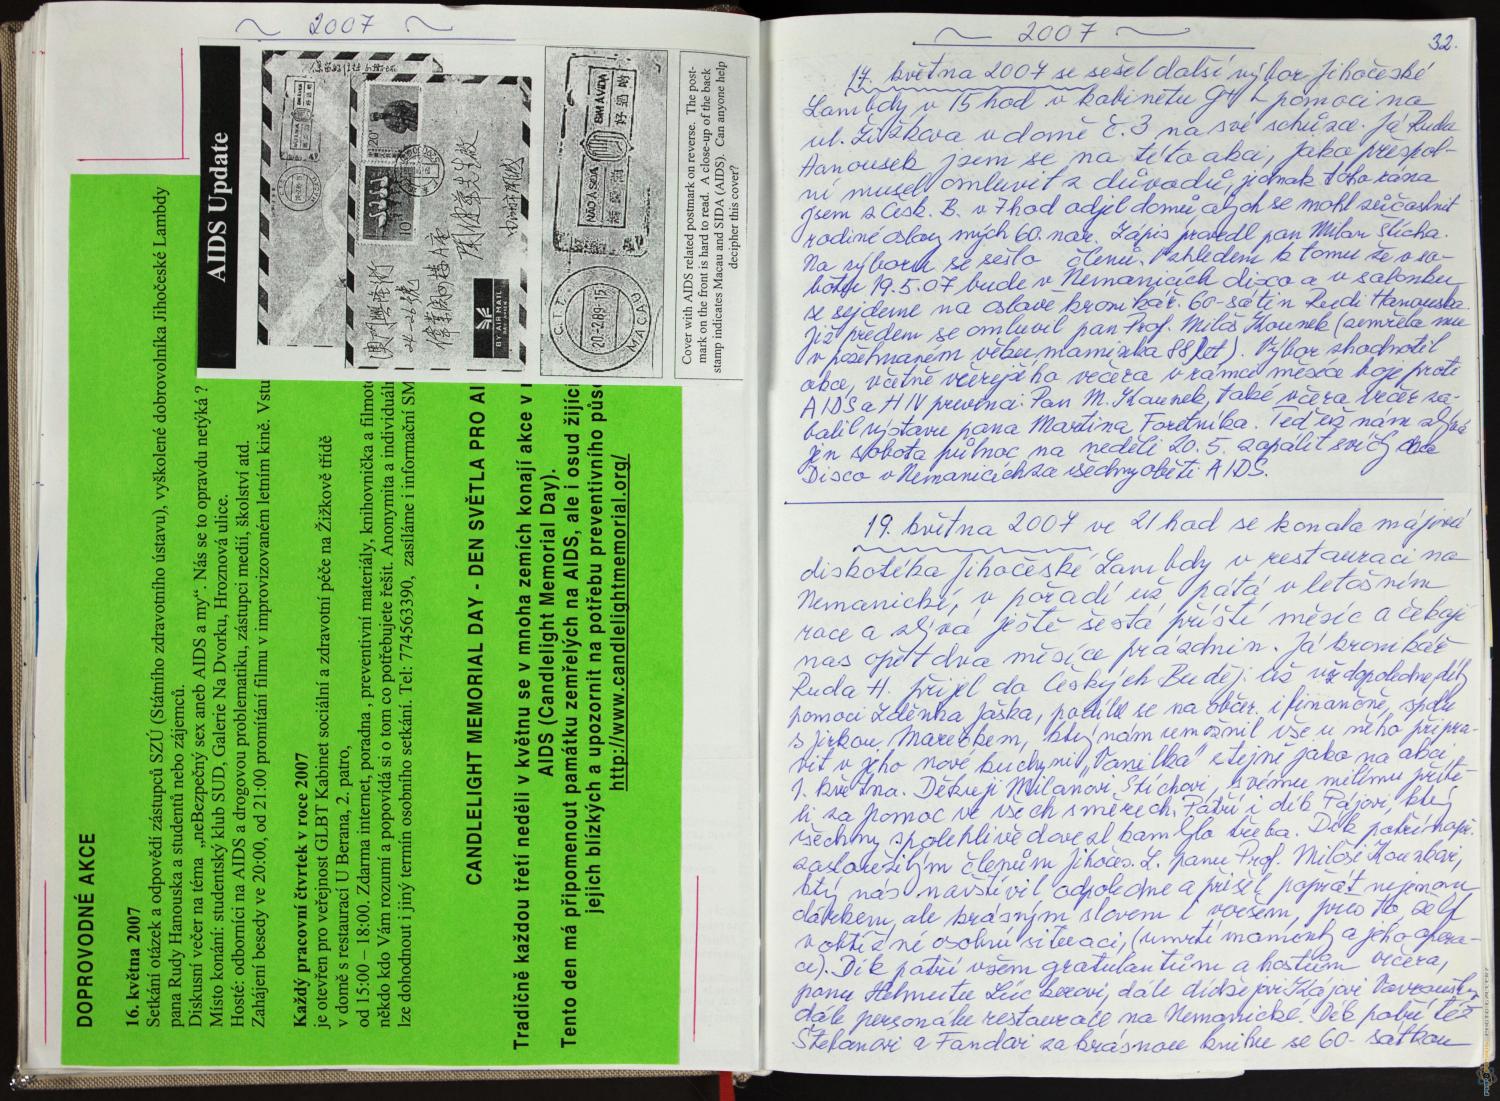 ~ 2007 ~
DOPROVODNÉ AKCE
16. května 2007
Setkání otázek a odpovědí zástupců SZÚ (Státního zdravotního ústavu), vyškolené dobrovolníka Jihočeské Lambdy
pana Rudy Hanouska a studentů nebo zájemců.
Diskusní večer na téma „neBezpečný sex aneb AIDS a my“. Nás se to opravdu netýká ?
Místo konání: studentský klub SUD, Galerie Na Dvorku, Hroznová ulice.
Hosté: odborníci na AIDS a drogovou problematiku, zástupci medií, školství atd.
Zahájení besedy ve 20:00, od 21:00 promítání filmu v improvizovaném letním kině. Vstu
Každý pracovní čtvrtek v roce 2007
je otevřen pro veřejnost GLBT Kabinet sociální a zdravotní péče na Žižkově třídě
v domě s restaurací U Berana, 2. patro,
od 15:00 – 18:00. Zdarma internet, poradna , preventivní materiály, knihovnička a filmot
někdo kdo Vám rozumí a popovídá si o tom co potřebujete řešit. Anonymita a individuáln
lze dohodnout i jiný termín osobního setkání. Tel: 774563390, zasíláme i informační SM
CANDLELIGHT MEMORIAL DAY - DEN SVĚTLA PRO AI
Tradičně každou třetí neděli v květnu se v mnoha zemích konají akce v
AIDS (Candlelight Memorial Day).
Tento den má připomenout památku zemřelých na AIDS, ale i osud žijící
jejich blízkých a upozornit na potřebu preventivního půso
http://www.candlelightmemorial.org/
AIDS Update
20
10
BY AIR MAIL
NAO SIDA
EM A VIDA
好過時
C.T.T.
20-2.89-15
MACAU
Cover with AIDS related postmark on reverse. The post-
mark on the front is hard to read. A close-up of the back
stamp indicates Macau and SIDA (AIDS). Can anyone help
decipher this cover?
~ 2007 ~
32.
17. května 2007 se sešel další výbor Jihočeské
Lambdy v 15 hod v kabinetu G a L pomoci na
ul. Žižkova v domě č. 3 na své schůzce. Já Ruda
Hanousek jsem se na této akci, jako přespol-
ní musel omluvit z důvodů, jednak toho rána
jsem z Česk. B. v 7 hod odjel domů abych se mohl zúčastnit
rodiné oslavy mých 60. nar. Zápis provedl pan Milan Šticha.
Na výboru se sešlo členů. Vzhledem k tomu že v so-
botu 19.5.07 bude v Nemanicích disco a v salonku
se sejdeme na oslavě kronikář. 60-satin Rudi Hanouska.
Již předem se omluvil pan Prof. Miloš Kounek (zemřela mu
v požehnaném věku maminka 88 let). Výbor zhodnotil
akce, včetně včerejšího večera v rámci měsíce boje proti
AIDS a HIV prevenci. Pan M. Kounek, také včera večer za-
balil výstavu pana Martina Foretníka. Teď už nám zbývá
jen sobota půlnoc na neděli 20.5. zapálit svíčky
Disco v Nemanicích za všechny oběti AIDS.
19. května 2007 ve 21 hod se konala májová
diskotéka Jihočeské Lambdy v restauraci na
Nemanické, v pořadí už pátá v letošním
roce a zbývá ještě šestá příští měsíc a čekají
nas opět dva měsíce prázdnin. Já kronikář
Ruda H. přijel do Českých Buděj. už dopoledne díky
pomoci Zdeňka Jáška, podílel se na občer. i finančně, spolu
s Jirkou Marečkem, který nám umožnil vše u něho připra-
vit v jeho nové kuchyni „Vanilka“ stejně jako na akci
1. května. Děkuji Milanovi Štichovi, svému milému příte-
li za pomoc ve všech směrech. Patří i dík Pájovi, který
všechny spolehlivě dovezl kam bylo třeba. Dík patří např.
zasloužilým členům Jihočes. L. panu Prof. Miloši Kounkovi,
který nás navštívil odpoledne a přišel popřát nejenom
dárkem, ale krásným slovem i veršem, přes to, že byl
v obtížné osobní situaci, (umrtí maminky a jeho opera-
ci). Dík patří všem gratulantům a hostům večera,
panu Helmutu dále didžejovi
dále personálu restaurace na Nemanické. Dík patří též
Štefanovi a Fandovi za krásnou knihu se 60- sátkou